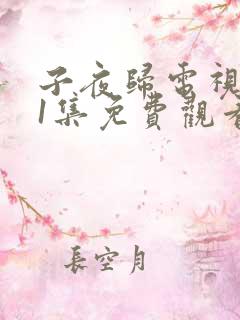 子夜歸電視
1集免費觀看
長空月